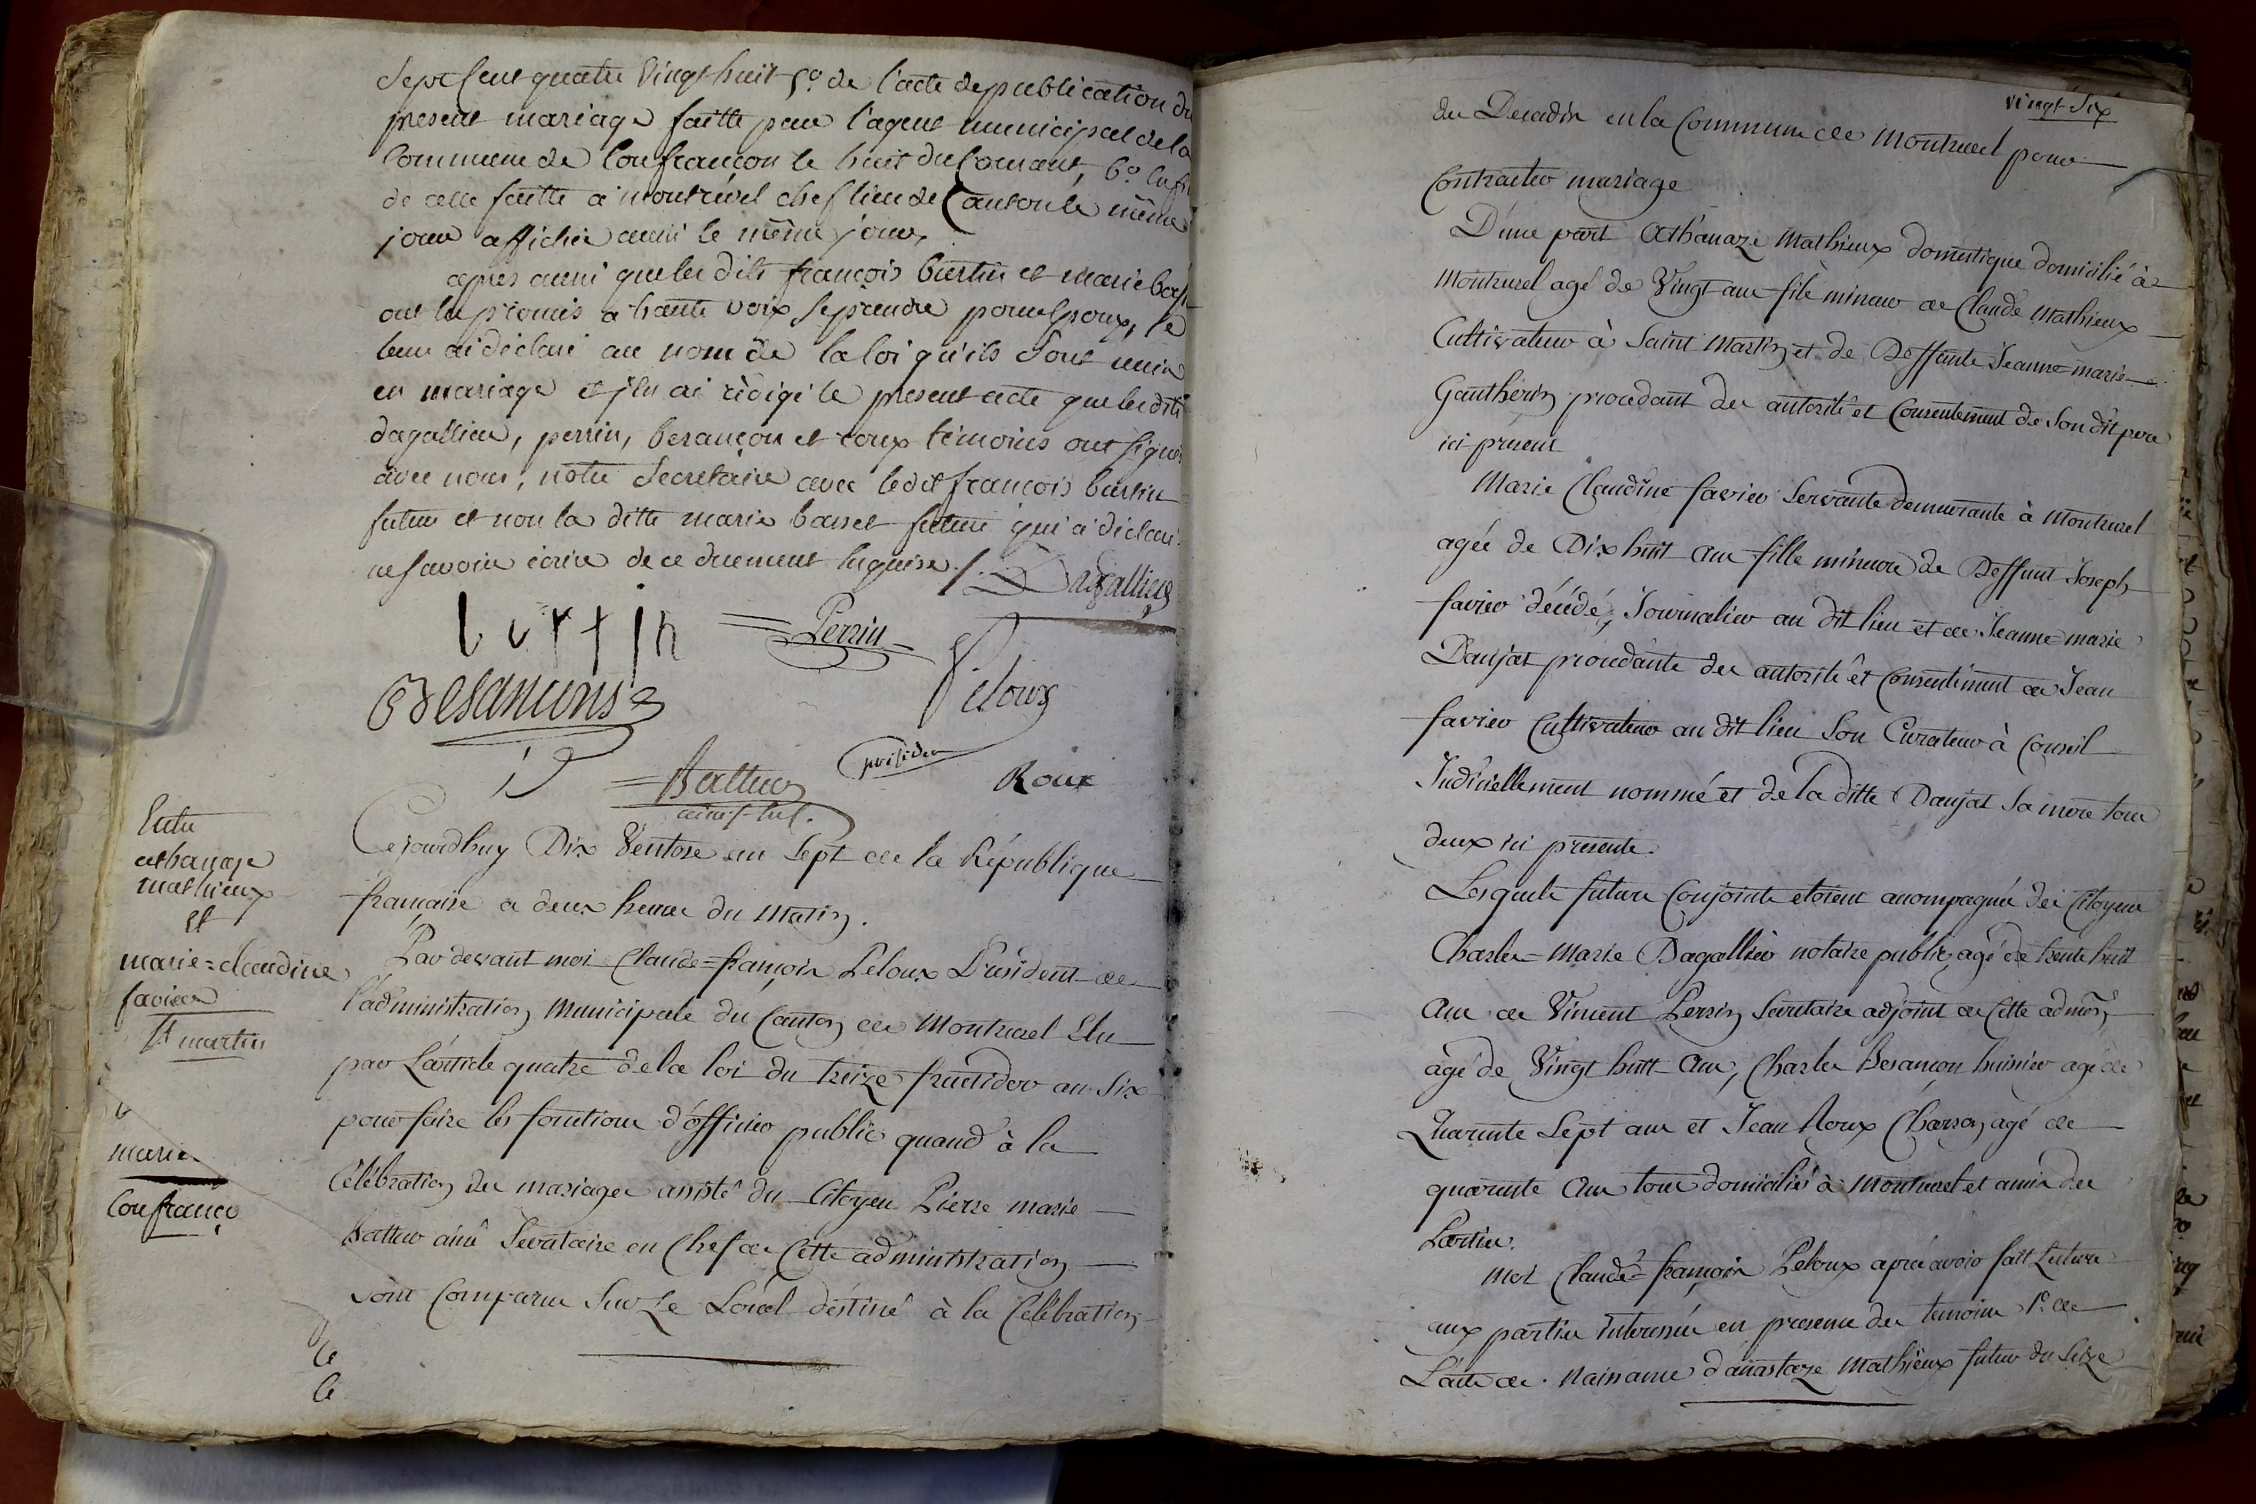 Sept Cent quatre Vingt huit 5.° de l'acte de publication du
present mariage faitte par l'agent municipal de la
Commune de Confrançon le huit du Courant, 6.° Enfin
de celle faitte a montrevel chef lieu de Canton le même
jour affichée aussi le même jour,
après aussi que les dits françois burtin et marie bass
ont lu promis a haute voix se prendre pour Epoux, Je
leur ai déclaré au nom de la loi qu'ils Sont unis
en mariage et j'en ai rédigé le present acte que les dits
dagallier, perrin, besançon et roux témoins ont signé
avec nous, notre Secretaire avec ledit françois burtin
futur et non la ditte marie basset future qui a déclaré
ne savoir écrire de ce duement enquise ./. Dagallier
burtin = Perrin
Besançons Peloux
président
= Battur Roux
ainé
Entre
athanaze
mathieux
et
marie=claudine
favier
St martin
marie
Confranço
Cejourdhuy Dix Ventose an Sept de la République
française a deux heures du Matin.
Par devant moi Claude=françois Peloux Président de
l'administration Municipale du Canton de Montrevel Elu
par L'article quatre de la loi du treize fructidor an Six
pour faire les fonctions d'officier public quand à la
Célébration des mariages assisté du Citoyen Pierre marie
Battur ainé Secretaire en Chef de Cette administration
Sont Comparus Sur Le Local destiné à la Célébration
de
le
le
vingt Six
des Decadis en la Commune de Montrevel pour
Contracter mariage
D'une part Athanaze Mathieux domestique domicilié à
Montrevel agé de Vingt ans fils mineur de Claude Mathieux
Cultivateur à Saint Martin et de Deffunte Jeanne=marie
Gautherin procedant des autorité et Consentement de Son dit pere
ici présent
Marie Claudine favier Servante demeurante à Montrevel
agée de Dix huit ans fille mineure de Deffunt Joseph
favier décédé, Journalier au dit lieu et de Jeanne=marie
Danjat procedante des autorité et Consentement de Jean
favier Cultivateur au dit lieu Son Curateur à Conseil
Judiciellement nommé et de la ditte Danjat Sa mere tous
deux ici presents.
Lesquels futurs Conjoints etoient accompagnés des Citoyens
Charles=Marie Dagallier notaire public, agé de trente huit
ans de Vincent Perrin Secretaire adjoint de Cette admon
agé de Vingt huit ans, Charles Besançon huissier agé de
Quarente Sept ans et Jean Roux Charron, agé de
quarente ans tous domiciliés à Montrevel et amis des
Parties.
Moi Claude=françois Peloux après avoir fait Lecture
aux parties interessées en presence des temoins 1.° de
L'acte de Naissance d'anastaze Mathieux futur du Seize